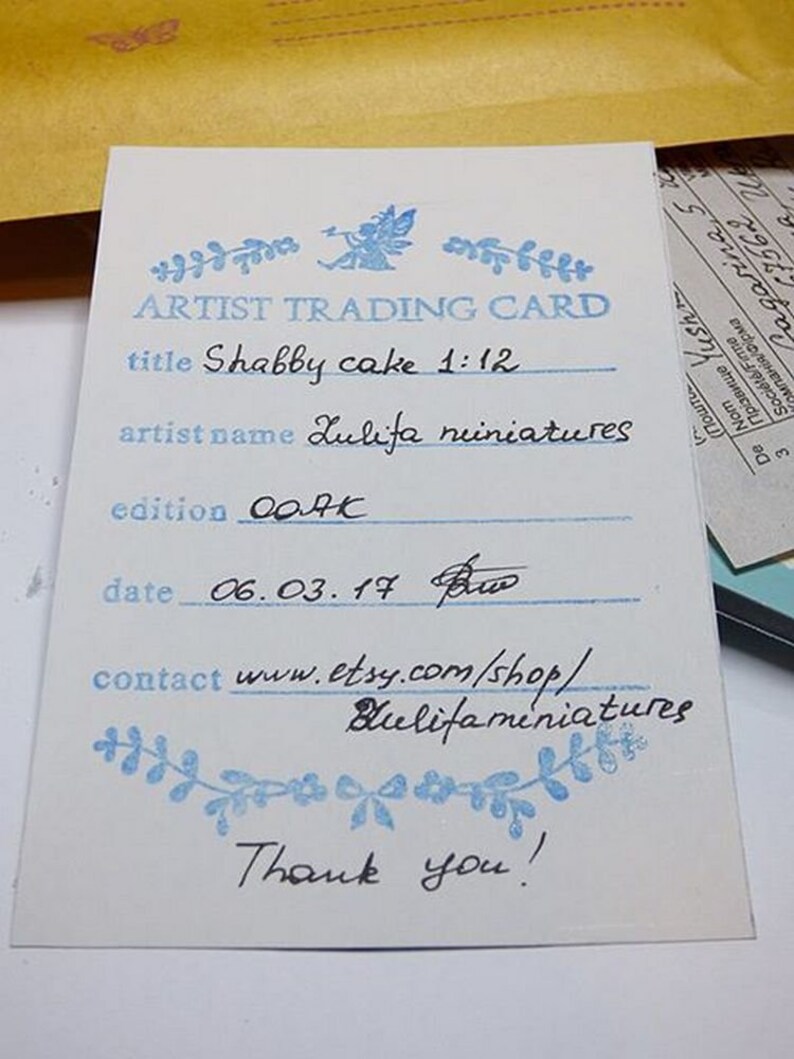 ARTIST TRADING CARD
title Shabby cake 1:12
artist name Zulifa miniatures
edition OOAK
date 06.03.17
contact www.etsy.com/shop/
Zulifaminiatures
Thank you!
De
3
Nom
Прізвище
Société/Firme
Компанія/фірма